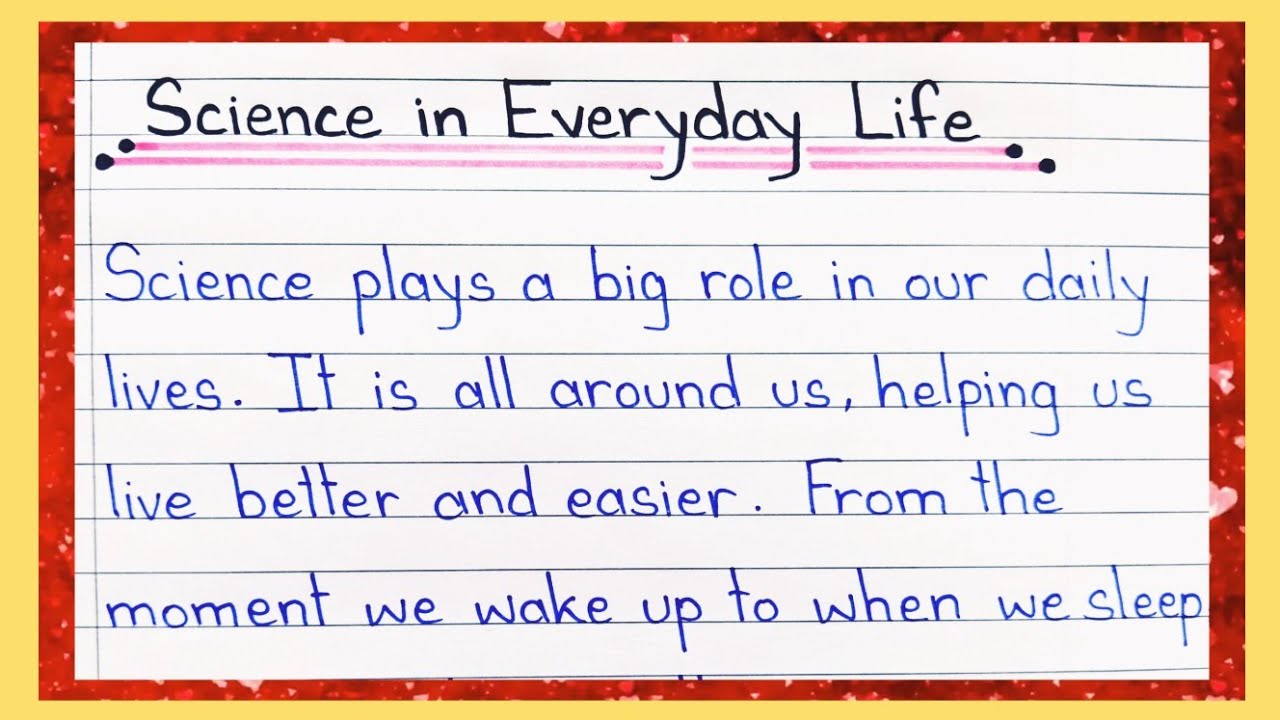 Science in Everyday Life
Science plays a big role in our daily
lives. It is all around us, helping us
live better and easier. From the
moment we wake up to when we sleep